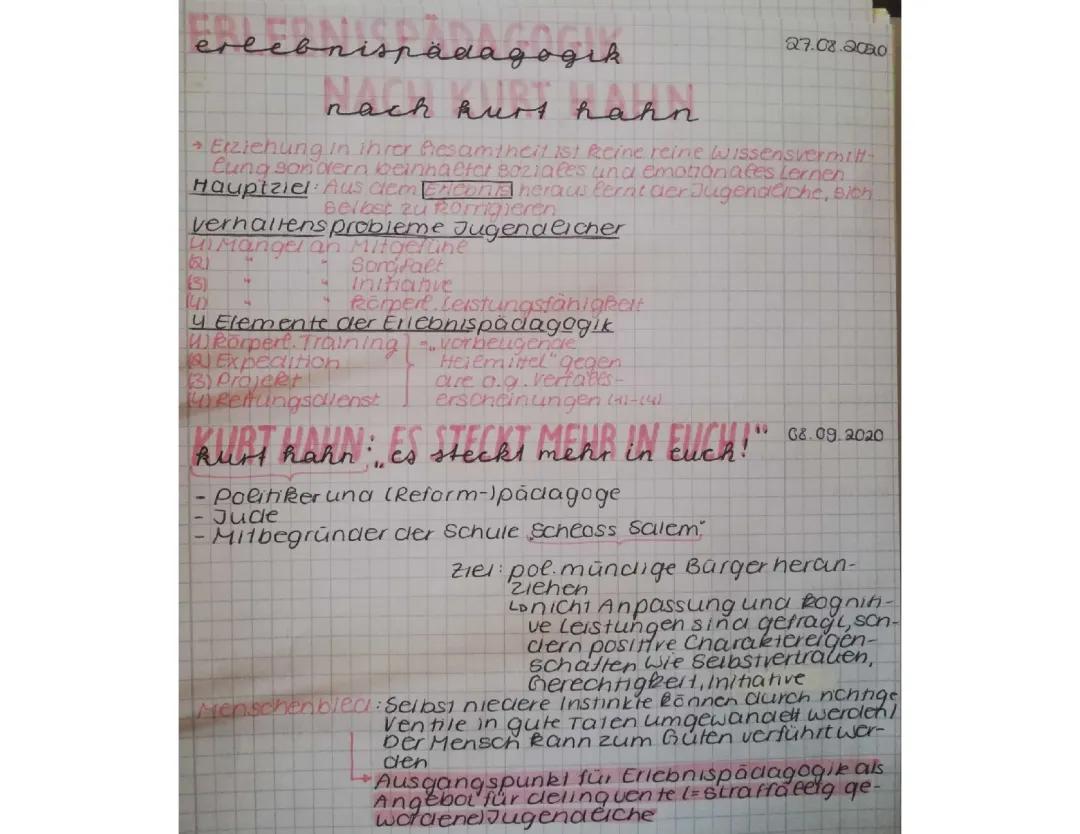 ERLEBNISPÄDAGOGIK
erlebnispädagogik 27.08.2020
NACH KURT HAHN
nach kurt hahn
→ Erziehung in ihrer Gesamtheit ist keine reine Wissensvermitt-
lung sondern beinhaltet soziales und emotionales Lernen
Hauptziel: Aus dem Erlebnis heraus lernt der Jugendliche, sich
selbst zu korrigieren
Verhaltensprobleme Jugendlicher
(1) Mangel an Mitgefühl
(2) " " Sorgfalt
(3) " " Initiative
(4) " " körperl. Leistungsfähigkeit
4 Elemente der Erlebnispädagogik
(1) körperl. Training - „vorbeugende
(2) Expedition Heilmittel" gegen
(3) Projekt die o.g. Verfalls-
(4) Rettungsdienst erscheinungen (1)-(4)
KURT HAHN: „ES STECKT MEHR IN EUCH!"
kurt hahn: „es steckt mehr in euch!" 08.09.2020
- Politiker und (Reform-)pädagoge
- Jude
- Mitbegründer der Schule „Schloss Salem"
Ziel: pol. mündige Bürger heran-
ziehen
↳ nicht Anpassung und kogniti-
ve Leistungen sind gefragt, son-
dern positive Charaktereigen-
schaften wie Selbstvertrauen,
Gerechtigkeit, Initiative
Menschenbild: Selbst niedere Instinkte können durch richtige
Ventile in gute Taten umgewandelt werden/
Der Mensch kann zum Guten verführt wer-
den
→ Ausgangspunkt für Erlebnispädagogik als
Angebot für delinquente (= straffällig ge-
wordene) Jugendliche